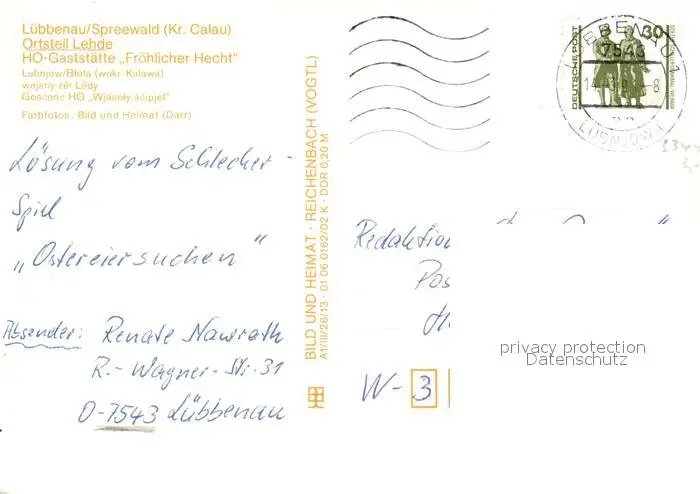 Lübbenau/Spreewald (Kr. Calau)
Ortsteil Lehde
HO-Gaststätte „Fröhlicher Hecht“
Lubnjow/Błota (wokr. Kalawa)
wejsny źěl Lědy
Gosćeńc HO „Wjasoły šćipjel“
Farbfotos: Bild und Heimat (Darr)
Lösung vom Schlecker-
Spiel
„Ostereiersuchen“
Absender: Renate Nawroth
R.-Wagner-Str. 31
O-7543 Lübbenau
BILD UND HEIMAT · REICHENBACH (VOGTL)
A1/III/26/13 · 01 06 0162/02 K · DDR 0,20 M
DEUTSCHE POST
30
LÜBBENAU 1
7543
LUBNJOW 1
Redaktion
Pos
W-3
privacy protection
Datenschutz